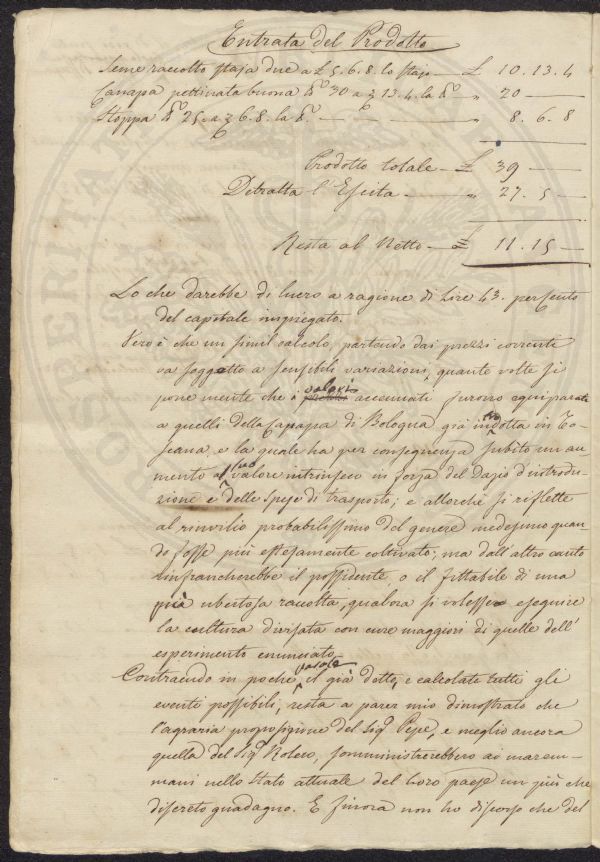 Entrata del Prodotto
Seme raccolto staja due a £ 5. 6. 8. lo stajo — £ 10. 13. 4
Canapa pettinata buona lb 30 a £ 13. 4. la lb — " 20 —
Stoppa lb 25. a £ 6. 8. la lb — " 8. 6. 8
Prodotto totale — £ 39 —
Detratta l'Escita — " 27. 5 —
Resta al Netto — £ 11. 15 —
Lo che darebbe di lucro a ragione di Lire 43. per cento
del capitale impiegato.
Vero è che un simil calcolo, partendo dai prezzi correnti
va soggetto a sensibili variazioni, quante volte si
pone mente che i valori accennati furono equiparati
a quelli della Canapa di Bologna già indotta in To-
scana, e la quale ha per conseguenza subito un au-
mento al suo valore intrinseco in forza del Dazio d'introdu-
zione e delle spese di trasporto; e allorchè si riflette
al rinvilio probabilissimo del genere medesimo quan-
do fosse più estesamente coltivato; ma dall'altro canto
rinfrancherebbe il possidente, o il fittabile di una
più ubertosa raccolta, qualora si volesse eseguire
la cultura divisata con cure maggiori di quelle dell'
esperimento enunciato.
Contraendo in poche parole il già detto, e calcolati tutti gli
eventi possibili, resta a parer mio dimostrato che
l'agraria proposizione del Sig.r Pepe, e meglio ancora
quella del Sig.r Roleo, somministrerebbero ai marem-
mani nello stato attuale del loro paese un più che
discreto guadagno. E finora non ho discorso che del